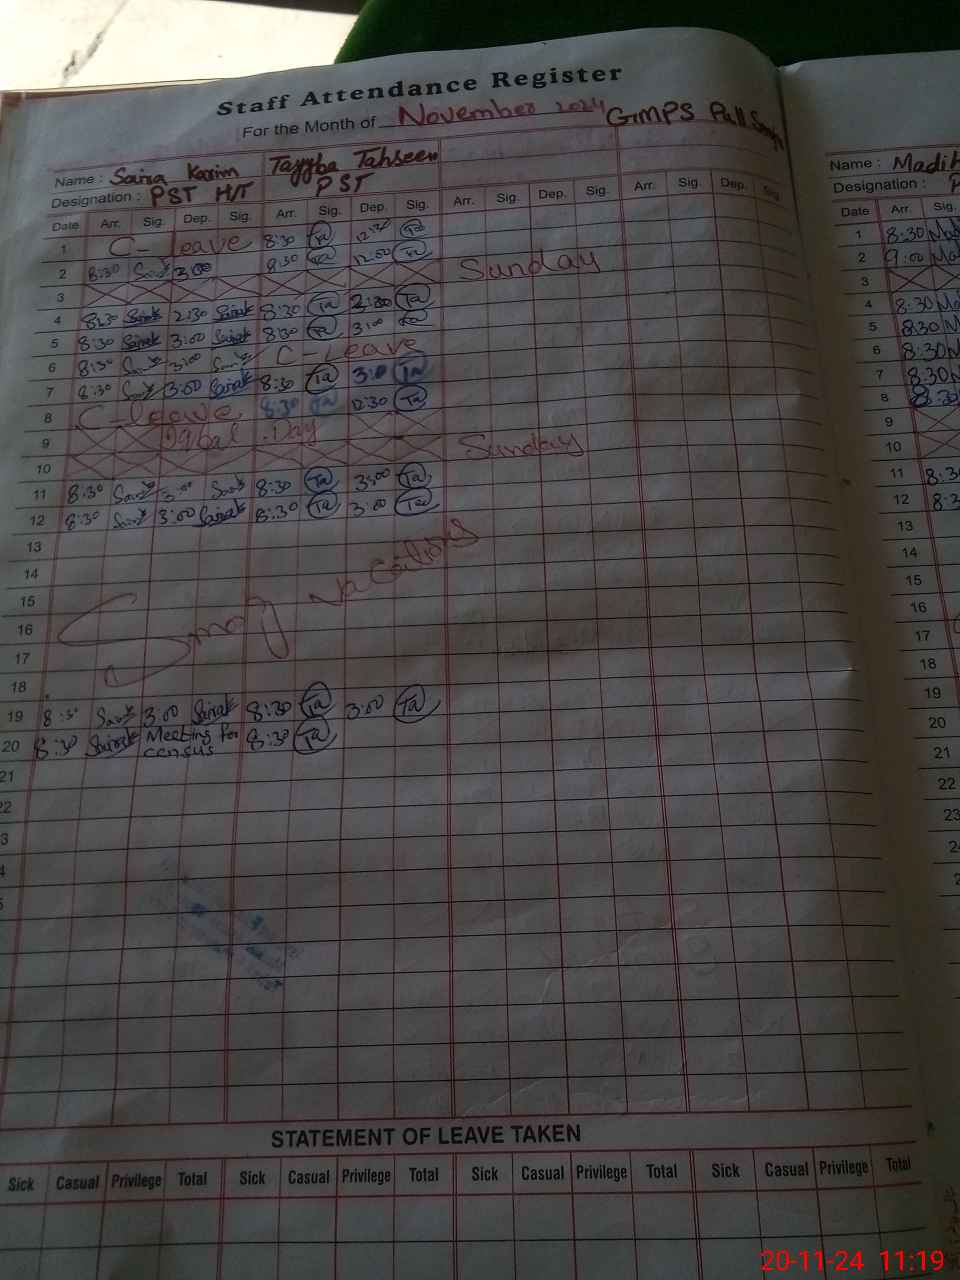 Staff Attendance Register
For the Month of November 2024 GMPS Pull
Name : Saira Karim Tayyba Tahseen
Designation : PST H/T PST
Date Arr. Sig. Dep. Sig. Arr. Sig. Dep. Sig. Arr. Sig. Dep. Sig. Arr. Sig. Dep. Sig.
1 C-leave 8:30 Ta 12:30 Ta
2 8:30 3:00 8:30 Ta 12:00 Ta
3 Sunday
4 8:30 2:30 8:30 Ta 2:30 Ta
5 8:30 3:00 8:30 Ta 3:00 Ta
6 8:30 3:00 C-Leave
7 8:30 3:00 8:30 Ta 3:0 Ta
8 C-leave 8:30 Ta 12:30 Ta
9 Iqbal Day
10 Sunday
11 8:30 3:00 8:30 Ta 3:00 Ta
12 8:30 3:00 8:30 Ta 3:00 Ta
13
14
15
16 Smog vacations
17
18
19 8:30 3:00 8:30 Ta 3:00 Ta
20 8:30 Meeting for census 8:30 Ta
21
22
3
4
5
STATEMENT OF LEAVE TAKEN
Sick Casual Privilege Total Sick Casual Privilege Total Sick Casual Privilege Total Sick Casual Privilege Total
Name : Madih
Designation : P
Date Arr. Sig.
1 8:30 Ma
2 9:00 Ma
3
4 8:30 Ma
5 8:30 M
6 8:30 M
7 8:30 M
8 8:30
9
10
11 8:3
12 8:3
13
14
15
16
17
18
19
20
21
22
23
2
2
20-11-24 11:19